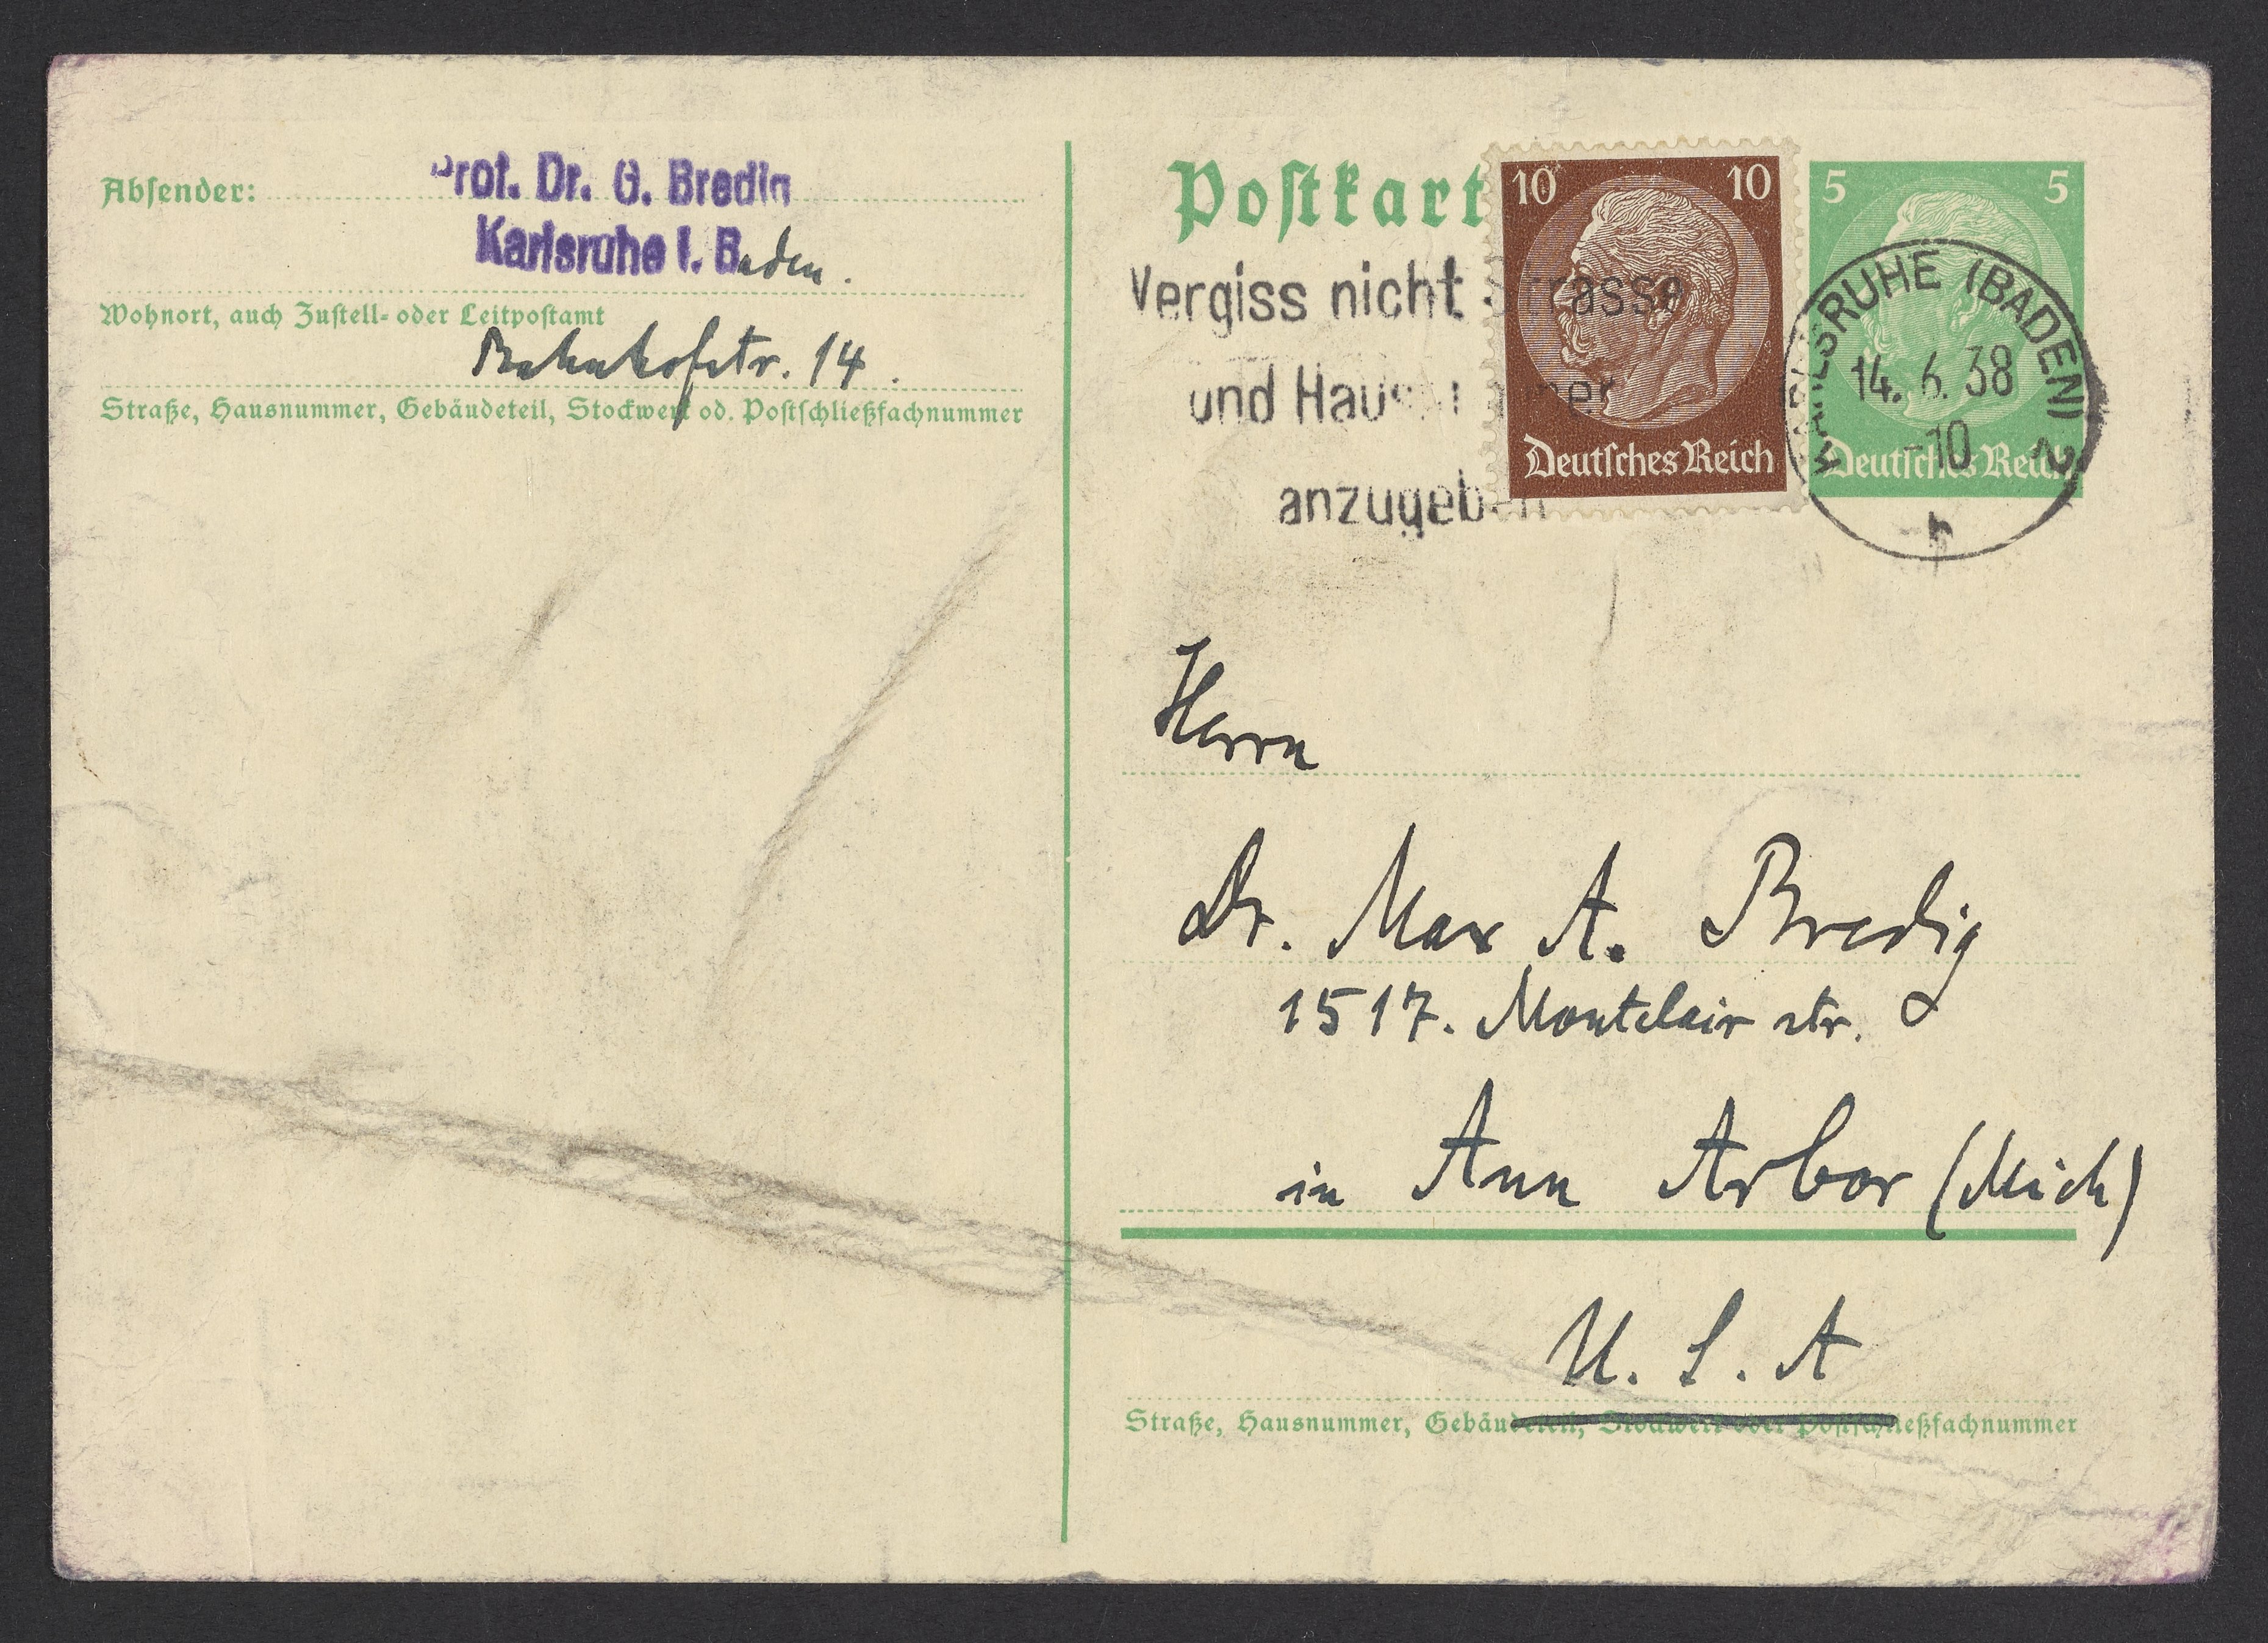 Absender:
Prof. Dr. G. Bredig
Karlsruhe i. Baden.
Wohnort, auch Zustell- oder Leitpostamt
Bahnhofstr. 14.
Straße, Hausnummer, Gebäudeteil, Stockwerk od. Postschließfachnummer
Postkart
10 10
Deutsches Reich
5 5
Deutsches Reich
Vergiss nicht Strasse
und Hausnummer
anzugeben
KARLSRUHE (BADEN) 2
14.6.38
-10
h
Herrn
Dr. Max A. Bredig
1517. Montclair str.
in Ann Arbor (Mich)
U. S. A
Straße, Hausnummer, Gebäudeteil, Stockwerk oder Postschließfachnummer